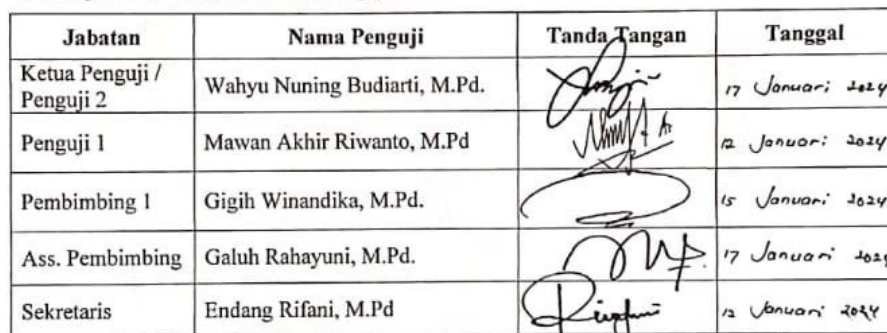 Jabatan Nama Penguji Tanda Tangan Tanggal
Ketua Penguji /
Penguji 2 Wahyu Nuning Budiarti, M.Pd. 17 Januari 2024
Penguji 1 Mawan Akhir Riwanto, M.Pd 12 Januari 2024
Pembimbing 1 Gigih Winandika, M.Pd. 15 Januari 2024
Ass. Pembimbing Galuh Rahayuni, M.Pd. 17 Januari 2024
Sekretaris Endang Rifani, M.Pd 12 Januari 2024